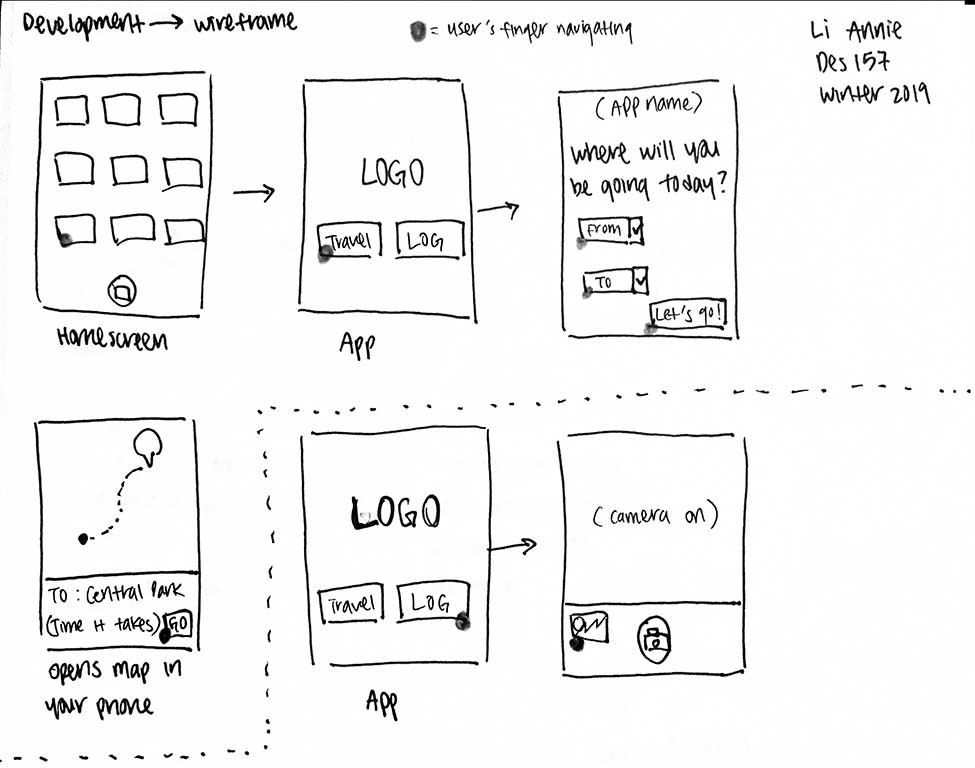 Development → wireframe
= user's finger navigating
Li Annie
Des 157
Winter 2019
Homescreen
LOGO
Travel
LOG
App
(App name)
where will you
be going today?
From
To
Let's go!
To : Central Park
(Time it takes)
GO
opens map in
your phone
LOGO
Travel
LOG
App
(camera on)